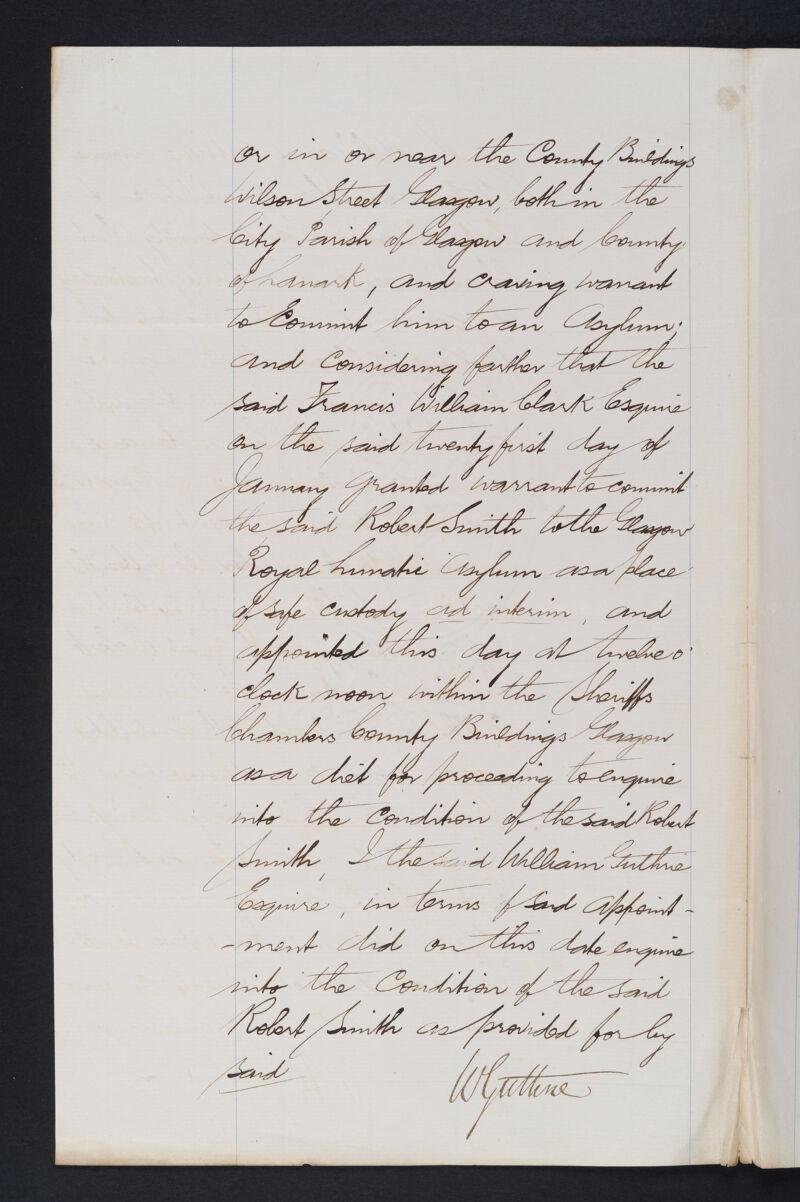 or in or near the County Buildings
Wilson Street Glasgow, both in the
City Parish of Glasgow and County
of Lanark, and craving warrant
to Commit him to an Asylum;
and Considering farther that the
said Francis William Clark Esquire
on the said twenty first day of
January granted warrant to commit
the said Robert Smith to the Glasgow
Royal Lunatic Asylum as a place
of safe custody ad interim, and
appointed this day at twelve o'
clock noon within the Sheriffs
Chambers County Buildings Glasgow
as a diet for proceeding to enquire
into the condition of the said Robert
Smith, I the said William Guthrie
Esquire, in terms of said appoint-
-ment did on this date enquire
into the Condition of the said
Robert Smith as provided for by
said
WGuthrie